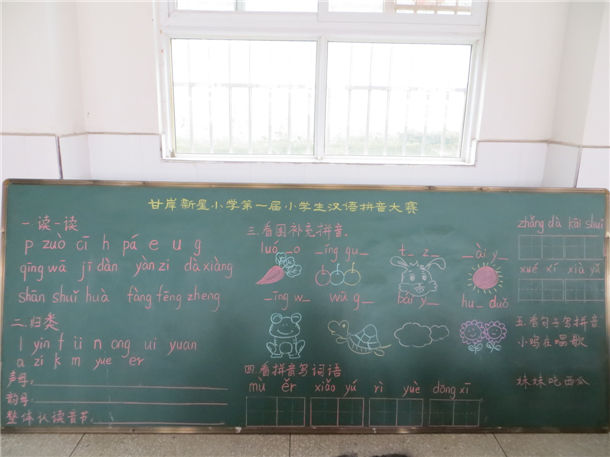 甘岸新星小学第一届小学生汉语拼音大赛
一.读一读
p zuò cī h pá e u g
qīng wā jī dàn yàn zi dà xiàng
shān shuǐ huà fàng fēng zheng
二.归类
l yin f ü n ong ui yuan
a zi k m yue er
声母:
韵母:
整体认读音节
三.看图补充拼音.
luó_o _īng gu_ t_z_ _ài y_
_īng w_ wū g_ bái y_ hu_ duǒ
四.看拼音写词语
mù ěr xiǎo yú rì yuè dōng xī
zhǎng dà kāi shuǐ
xué xí xià yǔ
五.看句子写拼音
小鸟在唱歌
妹妹吃西瓜